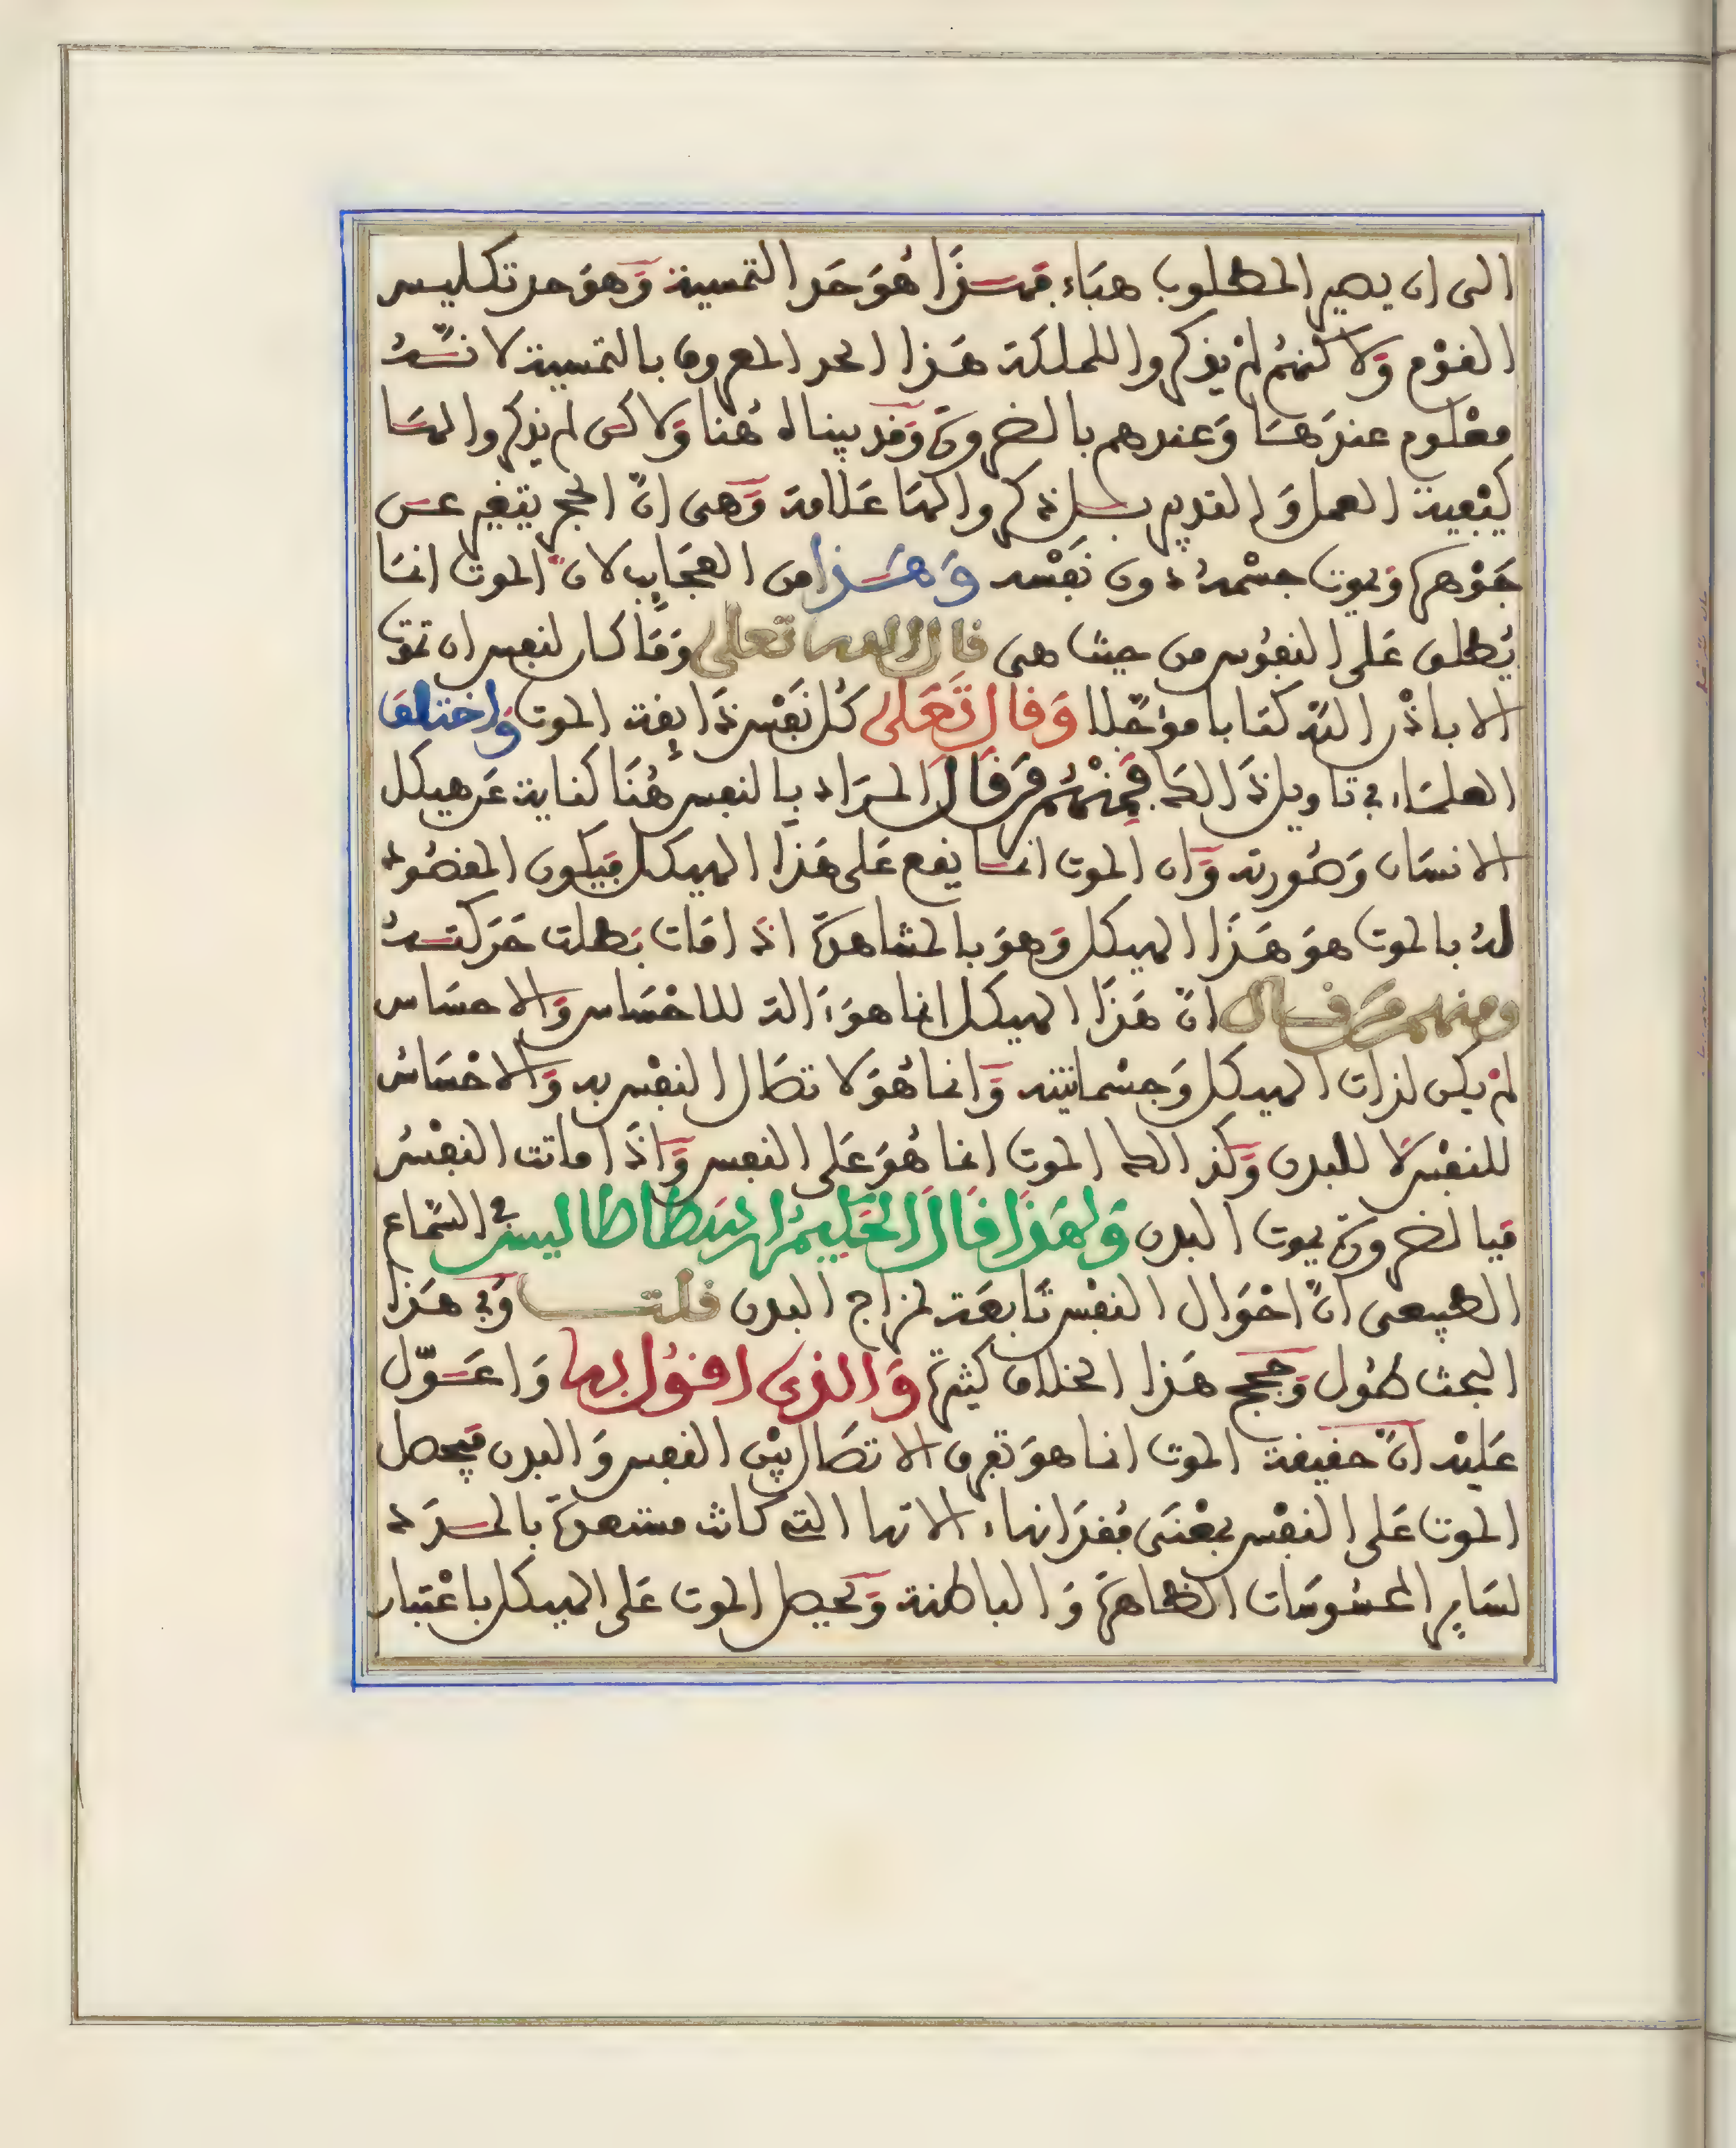 الى ان يصير المطلوب هباء فهذا هُوَ حَد التمسية وَهوَ حد تكليس
القوْم وَلاكنهُم لمْ يذكروا للملكة هَذا الحد المعروف بالتمسية لانّهُ
معْلوم عندَهَا وَعندهم بالضرورة وَقد بيناه هُنا وَلاكن لم يذكروا لها
كيْفية العمل وَالقديم بل ذكروا لهَا عَلامة وَهى انّ الحجر يتغير عن
جَوْهره وَيموت جسْمهُ دون نَفْسه وَهَذا من العجَايب لانّ الموت انما
يُطلق عَلى النفوس من حيث هى قال الله تعالى وَمَا كان لنفس ان تموت
الا باذْن الله كتابا موَجّلا وَقال تَعَالى كُل نَفْس ذَايقة الموت وَاختلف
العلماء فى تاويل ذَالك فَمنْهُم مَن قَالَ المرَاد بالنفس هُنَا كناية عَن هيكل
الانسَان وَصُورته وَان الموت انما يقع عَلى هَذَا الهيكل فيكون المقصُود
لهُ بالموت هوَ هَذَا الهيكل وَهوَ بالمشاهدة اذَا مَات بَطلت حَركتهُ
ومنهم مَن قال انّ هَذَا الهيكل انما هوَ ءَالة للاحْسَاس وَالاحسَاس
لمْ يكن لذات الهيكل وَجسْمانيته وَانما هُوَ لاتصَال النفْس به وَالاحْسَاسُ
للنفْس لَا للبدن وَكذالك الموت انما هُوَ عَلى النفس وَاذَا ماتت النفْسُ
فبالضرورة يموت البدن وَلهَذَا قَالَ الحَكيمُ ارسَطاطاليس فى السَّماع
الطبيعى انّ احْوَال النفْس تَابعَة لمزاج البدن قلت وَفى هَذَا
البحث طُول وَحجج هَذا الخلاف كثيرة وَالذى اقوُل به وَاعَوّل
عَليْه انّ حَقيقة الموت انما هوَ تفرق الاتصَال بيْن النفس وَالبدن فيحصل
الموت عَلى النفْس بمعْنَى فُقدَانها ءالاتها التى كانت مستعدة بالمدَد
لسَاير المحسُوسَات الظاهرَة وَالباطنة وَيحصل الموت عَلى الهيكل باعْتبار